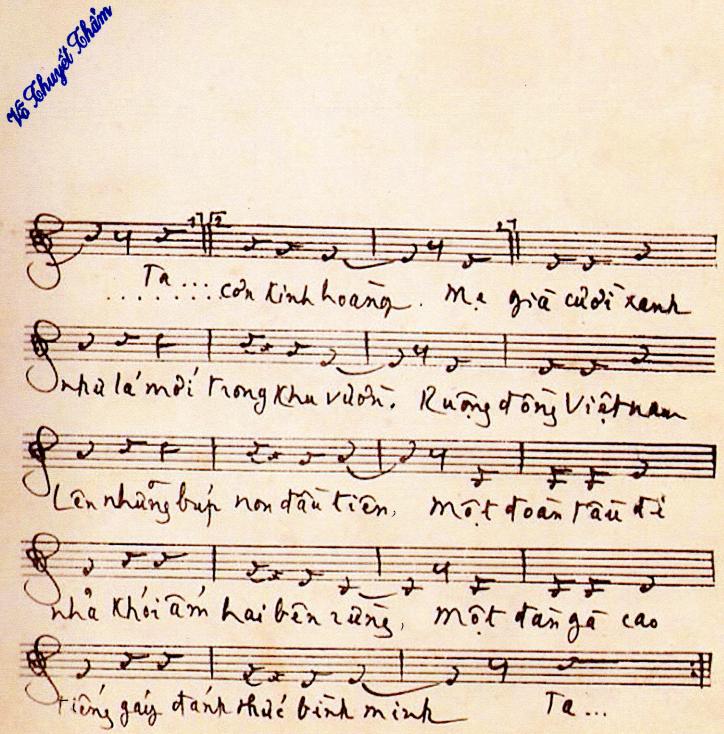 Võ Thuyết Thảm
1 2 2
Ta... cơn kinh hoàng. Mẹ già cười xanh
như lá mới trong khu vườn. Ruộng đồng Việt nam
Lên những búp non đầu tiên, Một đoàn tàu đi
nhả khói ấm hai bên rừng, Một đàn gà cao
tiếng gáy đánh thức bình minh Ta...